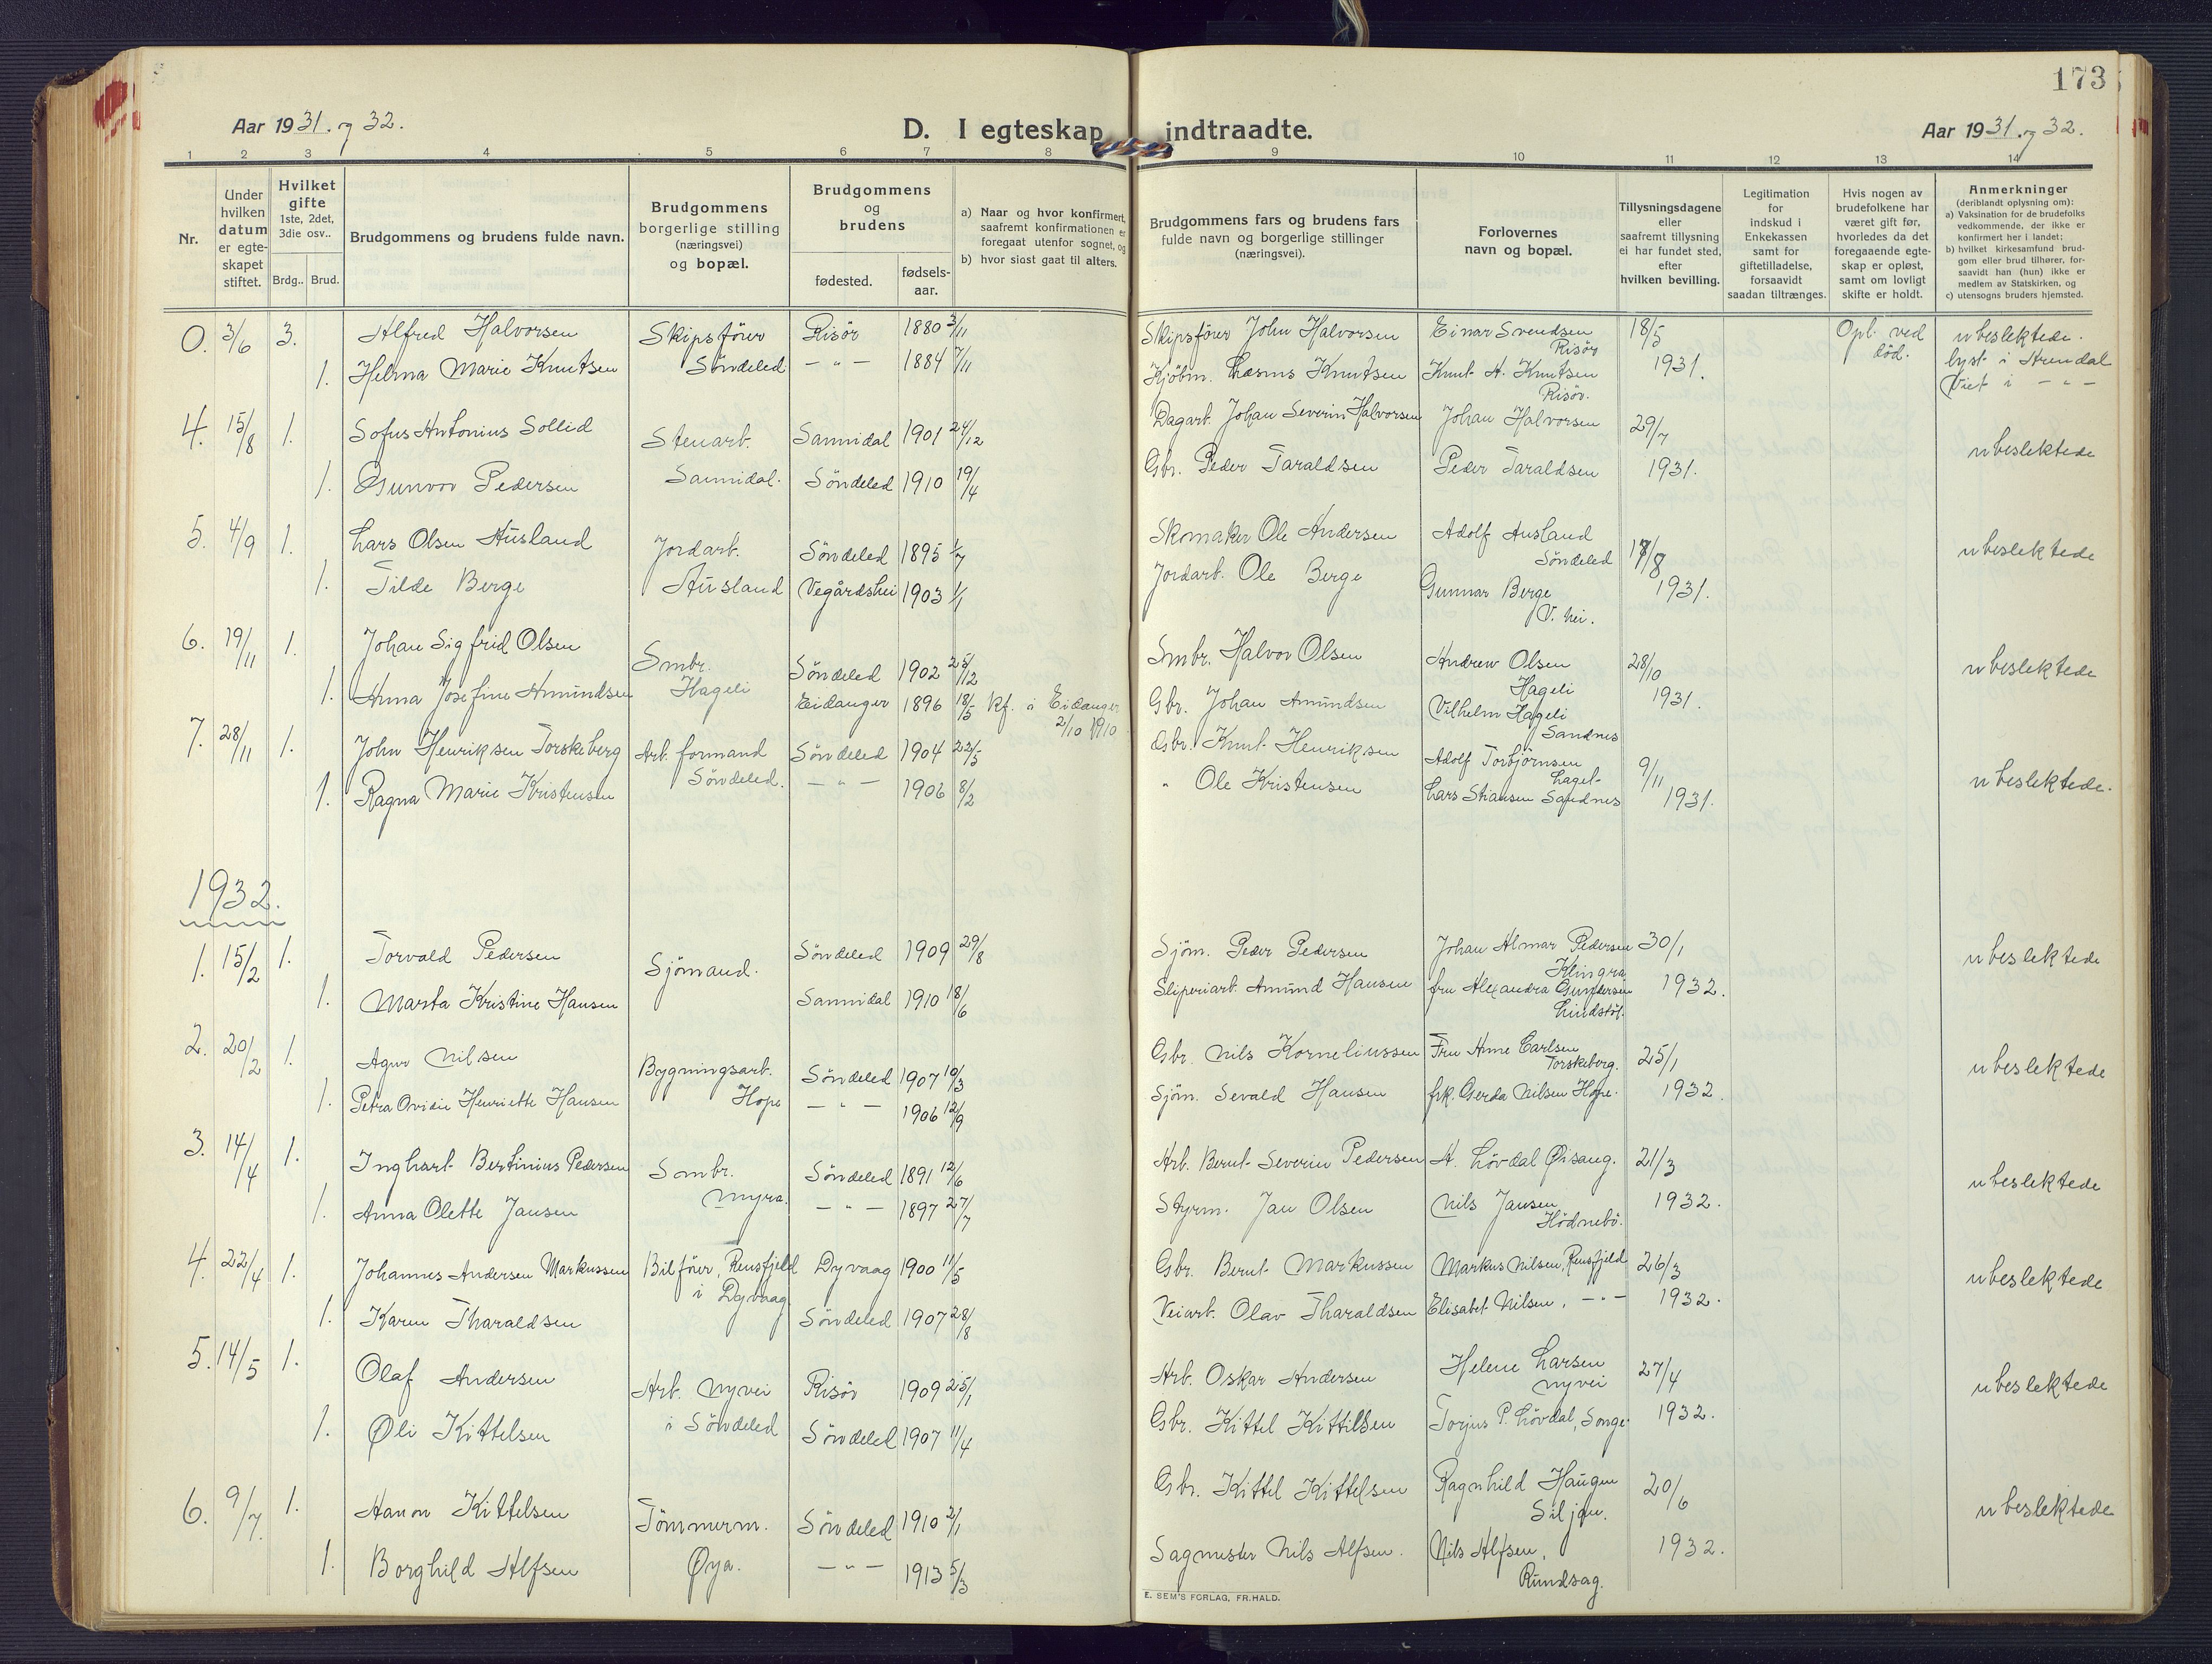 173
Aar 1931. og 32.
D. I egteskap indtraadte.
Aar 1931. og 32.
1 2 3 4 5 6 7 8 9 10 11 12 13 14
Nr.
Under hvilken datum er egteskapet stiftet.
Hvilket gifte 1ste, 2det, 3die osv..
Brdg.. Brud.
Brudgommens og brudens fulde navn.
Brudgommens borgerlige stilling (næringsvei) og bopæl.
Brudgommens og brudens
fødested. fødselsaar.
a) Naar og hvor konfirmert, saafremt konfirmationen er foregaat utenfor sognet, og
b) hvor sidst gaat til alters.
Brudgommens fars og brudens fars fulde navn og borgerlige stillinger (næringsvei).
Forlovernes navn og bopæl.
Tillysningsdagene eller saafremt tillysning ei har fundet sted, efter hvilken bevilling.
Legitimation for indskud i Enkekassen samt for giftetilladelse, forsaavidt saadan tiltrænges.
Hvis nogen av brudefolkene har været gift før, hvorledes da det foregaaende egteskap er opløst, samt om lovligt skifte er holdt.
Anmerkninger (deriblandt oplysning om):
a) Vaksination for brudefolks vedkommende, der ikke er konfirmert her i landet;
b) hvilket kirkesamfund brudgom eller brud tilhører, forsaavidt han (hun) ikke er medlem av Statskirken, og
c) utensogns bruders hjemsted.
0. 3/6 3. Alfred Halvorsen Skipsförer Risör 1880 3/11 Skipsförer John Halvorsen Einar Svendsen Risör 18/5 Opl. ved död. ubeslektede.
1. Helma Marie Knutsen Söndeled — " — 1884 7/11 Kjöbm. Rasmus Knutsen Knut A. Knutsen Risör. 1931. lyst i Arendal
Viet i — " —
4. 15/8 1. Sofus Antonius Sollid Stenarb. Sannidal 1901 24/12 Dagarb. Johan Severin Halvorsen Johan Halvorsen 29/7 ubeslektede
1. Gunvor Pedersen Sannidal. Söndeled 1910 19/4 Gbr. Peder Taraldsen Peder Taraldsen 1931.
5. 4/9 1. Lars Olsen Ausland Jordarb. Söndeled 1895 1/7 Skomaker Ole Andersen Adolf Ausland Söndeled 17/8 ubeslektede
1. Tilde Berge Ausland Vegårdshei 1903 1/1 Jordarb. Ole Berge Gunnar Berge V. hei. 1931.
6. 19/11 1. Johan Sigfrid Olsen Smbr. Söndeled 1902 25/12 Smbr. Halvor Olsen Andrew Olsen Hageli 28/10 ubeslektede
1. Anna Josefine Amundsen Hageli Eidanger 1896 18/5 Kf. i Eidanger 2/10 1910 Gbr. Johan Amundsen Vilhelm Hageli Sandnes 1931.
7. 28/11 1. John Henriksen Torskeberg Arb. formand Söndeled 1904 22/5 Gbr. Knut Henriksen Adolf Torbjörnsen Laget 9/11 ubeslektede.
1. Ragna Marie Kristensen Söndeled. — " — 1906 8/2 " Ole Kristensen Lars Stiansen Sandnes 1931.
1932.
1. 15/2 1. Torvald Pedersen Sjömand. Söndeled 1909 29/8 Sjöm. Peder Pedersen Johan Almar Pedersen Klingra 30/1 ubeslektede
1. Marta Kristine Hansen Sannidal 1910 18/6 Sliperiarb. Amund Hansen fru Alexandra Gundersen Lindstöl. 1932.
2. 20/2 1. Agur Nilsen Bygningsarb. Söndeled 1907 10/3 Gbr. Nils Korneliussen Fru Anne Carlsen Torskeberg. 25/1 ubeslektede
1. Petra Ovidie Henriette Hansen Hope — " — 1906 12/9 Sjöm. Sevald Hansen frk. Gerda Nilsen Hope. 1932.
3. 14/4 1. Inghart Bertinius Pedersen Smbr. Söndeled 1891 12/6 Arb. Bernt Severin Pedersen A. Lövdal Øisang. 21/3 ubeslektede
1. Anna Olette Jansen Myra. — " — 1897 27/7 Styrm. Jan Olsen Nils Jansen Hödnebö. 1932.
4. 22/4 1. Johannes Andersen Markussen Bilförer, Rensfjeld Dyvaag 1900 11/5 Gbr. Bernt Markussen Markus Nilsen, Rensfjeld 26/3 ubeslektede
1. Karen Tharaldsen i Dyvaag Söndeled 1907 28/8 Veiarb. Olav Tharaldsen Elisabet Nilsen, — " — 1932.
5. 14/5 1. Olaf Andersen Arb. Nyvei Risör 1909 25/1 Arb. Oskar Andersen Helene Larsen Nyvei 27/4 ubeslektede
1. Øli Kittelsen i Söndeled Söndeled 1907 11/4 Gbr. Kittel Kittilsen Torjus P. Lövdal, Songe. 1932.
6. 9/7. 1. Hanon Kittelsen Tömmerm. Söndeled 1910 2/1 Gbr. Kittel Kittelsen Ragnhild Haugen Siljan. 20/6 ubeslektede
1. Borghild Alfsen Øya. — " — 1913 5/3 Sagmester Nils Alfsen. Nils Alfsen, Rundsag. 1932.
E. SEM'S FORLAG, FR.HALD.